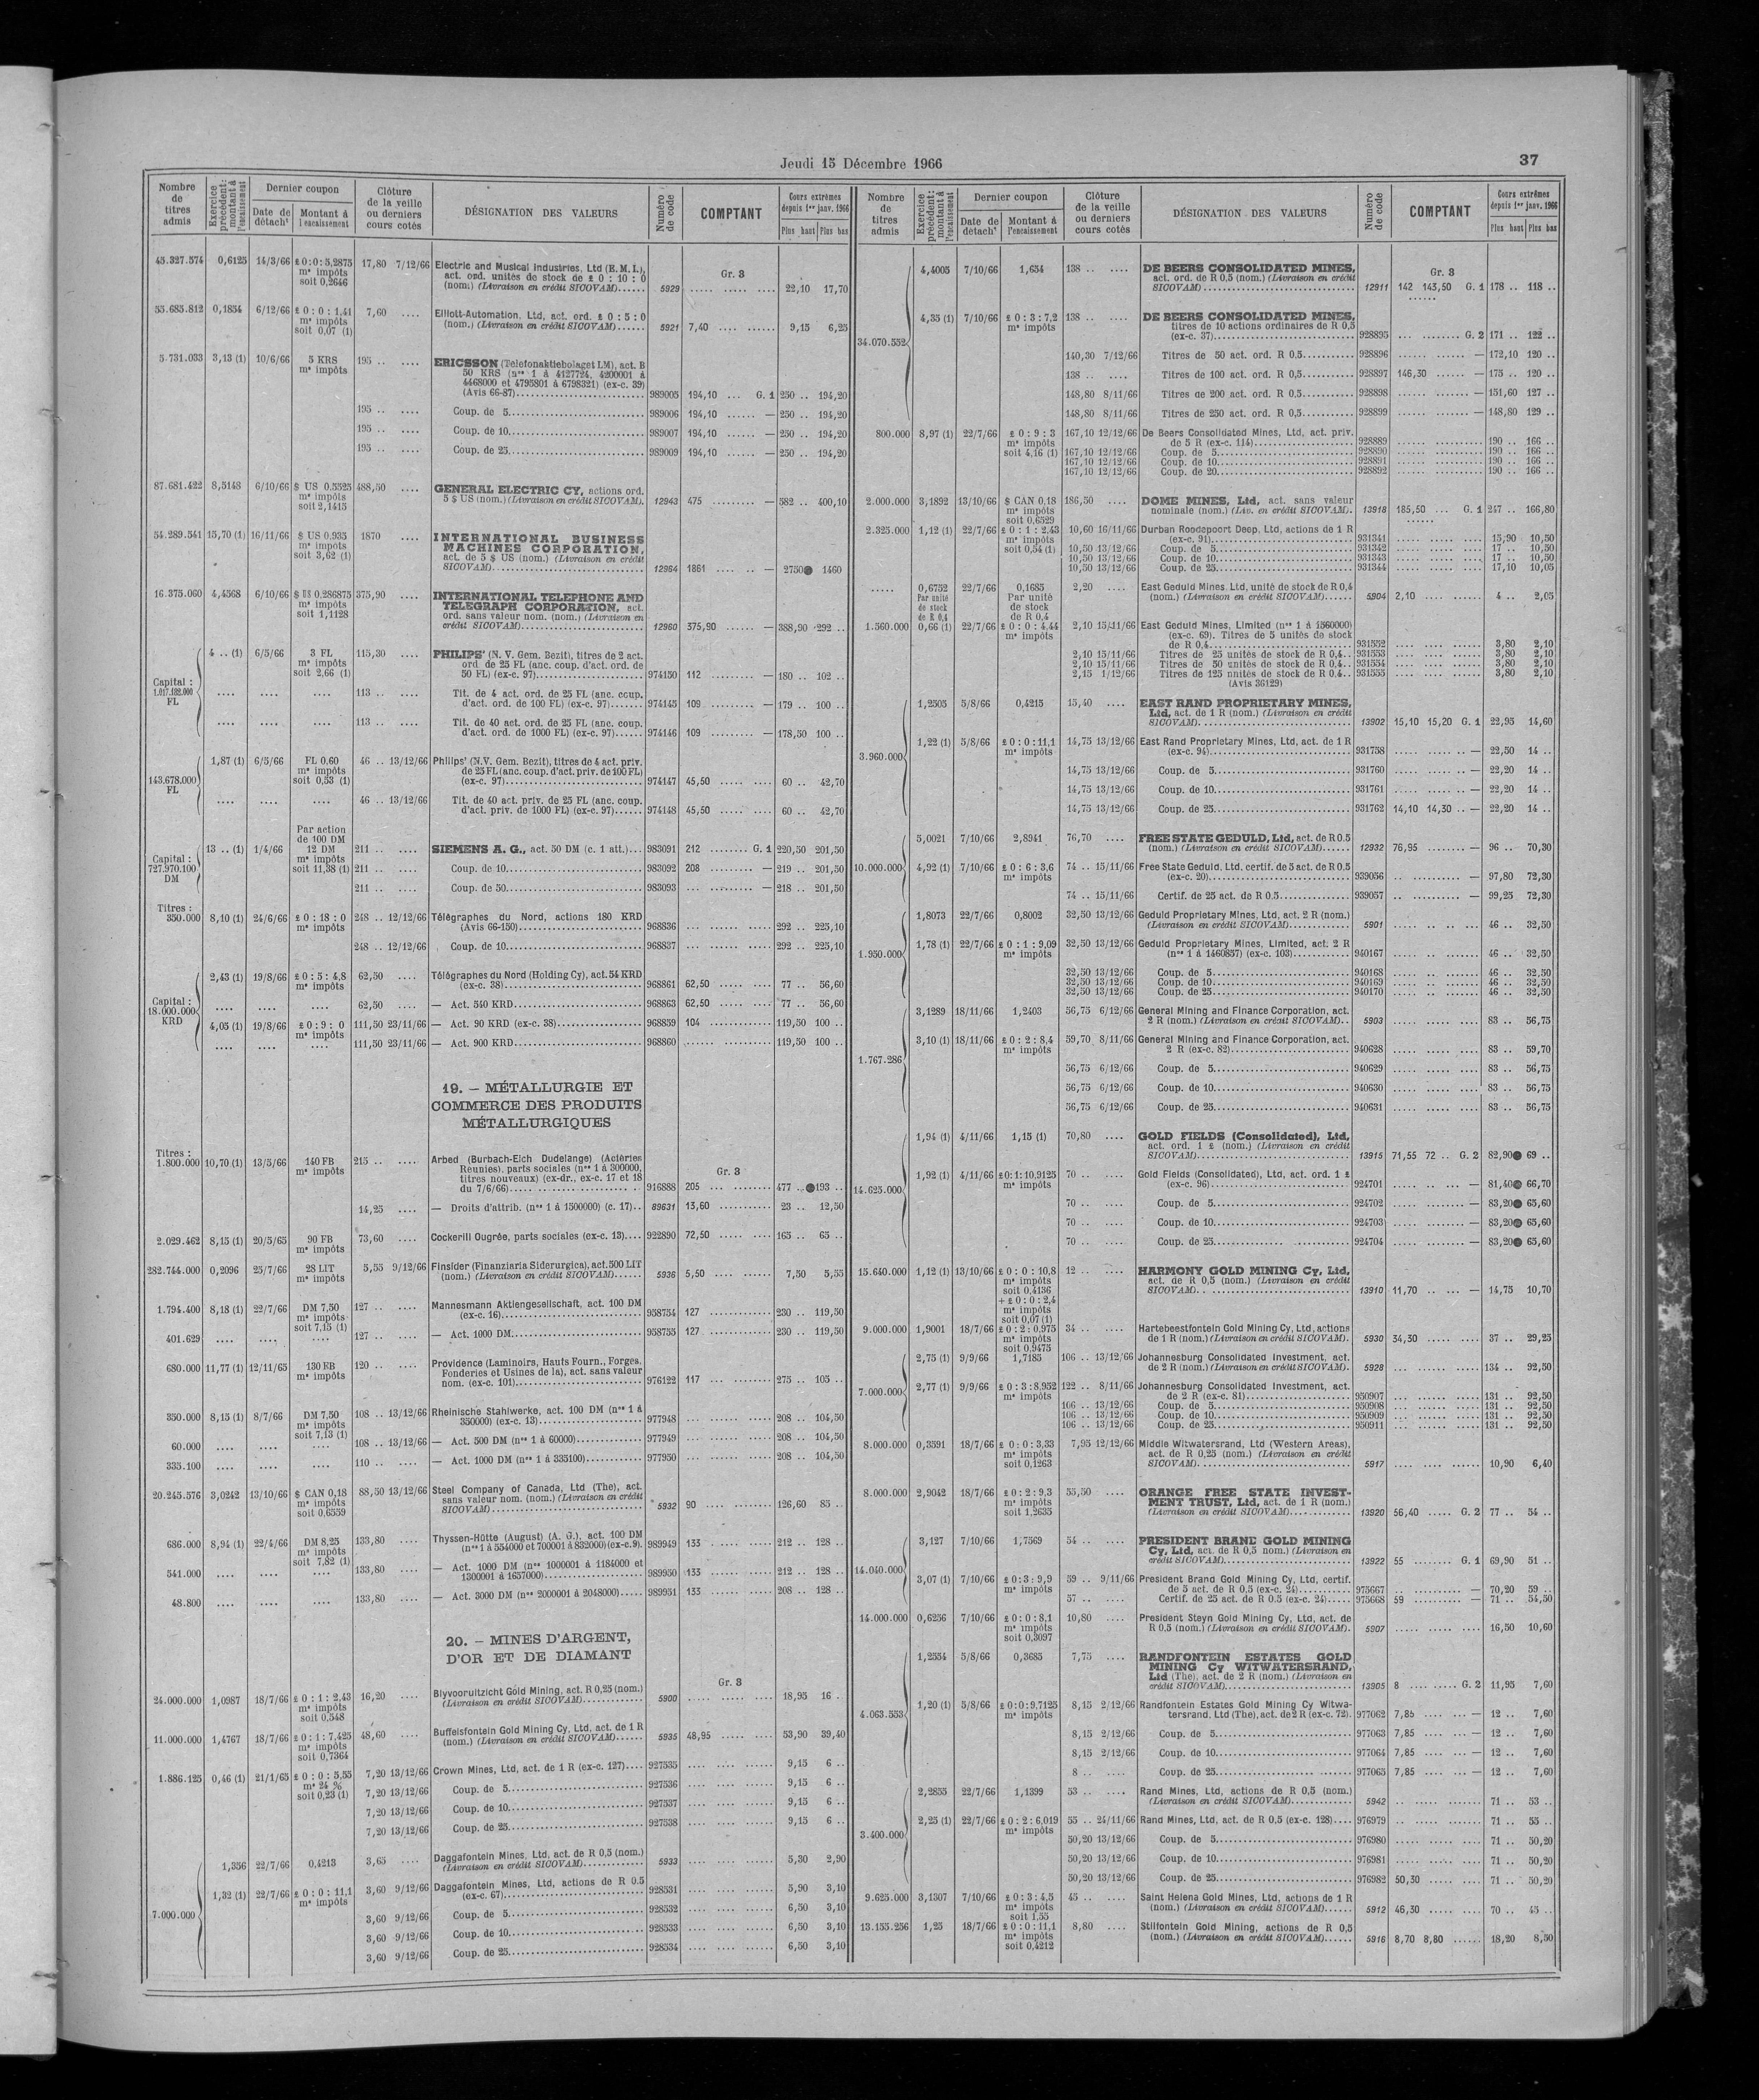 Jeudi 15 Décembre 1966
37
Nombre de titres admis | Exercice précédent: montant à l'encaissement | Dernier coupon | Date de détacht | Montant à l'encaissement | Clôture de la veille ou derniers cours cotés | DÉSIGNATION DES VALEURS | Numéro de code | COMPTANT | Cours extrêmes depuis 1er janv. 1966 | Plus haut | Plus bas
45.327.574 0,6125 14/3/66 £0:0:5,2875 17,80 7/12/66 Electric and Musical Industries, Ltd (E.M.I.),
mª impôts act. ord. unités de stock de £ 0 : 10 : 0 Gr. 3
soit 0,2646 (nom.) (Livraison en crédit SICOVAM)...... 5929 ..... ..... .... 22,10 17,70
55.685.812 0,1854 6/12/66 £ 0 : 0 : 1,41 7,60 .... Elliott-Automation, Ltd, act. ord. £ 0 : 5 : 0
mª impôts
soit 0,07 (1) (nom.) (Livraison en crédit SICOVAM)...... 5921 7,40 .... ...... 9,15 6,25
5.731.033 3,13 (1) 10/6/66 5 KRS 195 .. .... ERICSSON (Telefonaktiebolaget LM), act. B
mª impôts 50 KRS (nos 1 à 4127724, 4200001 à
4468000 et 4795801 à 6798321) (ex-c. 39)
(Avis 66-87)...... 989005 194,10 ... G. 1 250 .. 194,20
195 .. .... Coup. de 5...... 989006 194,10 ...... — 250 .. 194,20
195 .. .... Coup. de 10...... 989007 194,10 ...... — 250 .. 194,20
195 .. .... Coup. de 25...... 989009 194,10 ...... — 250 .. 194,20
87.681.422 8,5148 6/10/66 $ US 0.5525 488,50 .... GENERAL ELECTRIC CY, actions ord.
mª impôts 5 $ US (nom.) (Livraison en crédit SICOVAM). 12943 475 ......... — 582 .. 400,10
soit 2,1415
54.289.541 15,70 (1) 16/11/66 $ US 0,935 1870 .... INTERNATIONAL BUSINESS
mª impôts MACHINES CORPORATION,
soit 3,62 (1) act. de 5 $ US (nom.) (Livraison en crédit
SICOVAM)...... 12964 1861 .... .. — 2750 1460
16.375.060 4,4568 6/10/66 $ US 0.286875 375,90 .... INTERNATIONAL TELEPHONE AND
mª impôts TELEGRAPH CORPORATION, act.
soit 1,1128 ord. sans valeur nom. (nom.) (Livraison en
crédit SICOVAM)...... 12960 375,90 ...... — 388,90 292 ..
4 .. (1) 6/5/66 3 FL 115,30 .... PHILIPS' (N. V. Gem. Bezit), titres de 2 act.
mª impôts ord. de 25 FL (anc. coup. d'act. ord. de
soit 2,66 (1) 50 FL) (ex-c. 97)...... 974150 112 ......... — 180 .. 102 ..
Capital : 1.017.182.000 FL
.... .... .... 113 .. .... Tit. de 4 act. ord. de 25 FL (anc. coup.
d'act. ord. de 100 FL) (ex-c. 97)...... 974145 109 ......... — 179 .. 100 ..
.... .... .... 113 .. .... Tit. de 40 act. ord. de 25 FL (anc. coup.
d'act. ord. de 1000 FL) (ex-c. 97)...... 974146 109 ......... — 178,50 100 ..
1,87 (1) 6/5/66 FL 0,60 46 .. 13/12/66 Philips' (N.V. Gem. Bezit), titres de 4 act. priv.
143.678.000 FL mª impôts de 25 FL (anc. coup. d'act. priv. de 100 FL)
soit 0,53 (1) (ex-c. 97)...... 974147 45,50 ..... .... 60 .. 42,70
.... .... .... 46 .. 13/12/66 Tit. de 40 act. priv. de 25 FL (anc. coup.
d'act. priv. de 1000 FL) (ex-c. 97)...... 974148 45,50 ..... .... 60 .. 42,70
Par action
de 100 DM
Capital : 727.970.100 DM 13 .. (1) 1/4/66 12 DM 211 .. .... SIEMENS A. G., act. 50 DM (c. 1 att.)... 983091 212 ........ G. 1 220,50 201,50
mª impôts
soit 11,38 (1) 211 .. .... Coup. de 10...... 983092 208 ......... — 219 .. 201,50
211 .. .... Coup. de 50...... 983093 ... ......... — 218 .. 201,50
Titres :
350.000 8,10 (1) 24/6/66 £ 0 : 18 : 0 248 .. 12/12/66 Télégraphes du Nord, actions 180 KRD
mª impôts (Avis 66-150)...... 968836 ... ...... ..... 292 .. 225,10
248 .. 12/12/66 Coup. de 10...... 968837 ... ...... ..... 292 .. 225,10
2,43 (1) 19/8/66 £ 0 : 5 : 4,8 62,50 .... Télégraphes du Nord (Holding Cy), act. 54 KRD
mª impôts (ex-c. 38)...... 968861 62,50 ..... .... 77 .. 56,60
Capital : 18.000.000 KRD
.... .... .... 62,50 .... — Act. 540 KRD...... 968863 62,50 ..... .... 77 .. 56,60
4,05 (1) 19/8/66 £ 0 : 9 : 0 111,50 23/11/66 — Act. 90 KRD (ex-c. 38)...... 968859 104 ............ 119,50 100 ..
mª impôts
.... .... .... 111,50 23/11/66 — Act. 900 KRD...... 968860 ...... ......... 119,50 100 ..
19. — MÉTALLURGIE ET
COMMERCE DES PRODUITS
MÉTALLURGIQUES
Titres :
1.800.000 10,70 (1) 13/5/66 140 FB 215 .. .... Arbed (Burbach-Eich Dudelange) (Aciéries
mª impôts Réunies), parts sociales (nos 1 à 300000, Gr. 3
titres nouveaux) (ex-dr., ex-c. 17 et 18
du 7/6/66)...... 916888 205 ... ......... 477 .. 193 ..
14,25 .... — Droits d'attrib. (nos 1 à 1500000) (c. 17).. 89631 13,60 ........... 23 .. 12,50
2.029.462 8,15 (1) 20/5/65 90 FB 73,60 .... Cockerill Ougrée, parts sociales (ex-c. 13).... 922890 72,50 ..... ..... 165 .. 65 ..
mª impôts
282.744.000 0,2096 25/7/66 28 LIT 5,55 9/12/66 Finsider (Finanziaria Siderurgica), act. 500 LIT
mª impôts (nom.) (Livraison en crédit SICOVAM)...... 5936 5,50 .... ...... 7,50 5,55
1.794.400 8,18 (1) 22/7/66 DM 7,50 127 .. .... Mannesmann Aktiengesellschaft, act. 100 DM
mª impôts (ex-c. 16)...... 958754 127 ............ 230 .. 119,50
soit 7,15 (1)
401.629 .... .... .... 127 .. .... — Act. 1000 DM...... 958755 127 ............ 230 .. 119,50
680.000 11,77 (1) 12/11/65 130 FB 120 .. .... Providence (Laminoirs, Hauts Fourn., Forges,
mª impôts Fonderies et Usines de la), act. sans valeur
nom. (ex-c. 101)...... 976122 117 ... ........ 275 .. 105 ..
350.000 8,15 (1) 8/7/66 DM 7,50 108 .. 13/12/66 Rheinische Stahlwerke, act. 100 DM (nos 1 à
mª impôts 350000) (ex-c. 13)...... 977948 ... ...... ..... 208 .. 104,50
soit 7,13 (1)
60.000 .... .... .... 108 .. 13/12/66 — Act. 500 DM (nos 1 à 60000)...... 977949 ... ...... ..... 208 .. 104,50
335.100 .... .... .... 110 .. .... — Act. 1000 DM (nos 1 à 335100)...... 977950 ... ...... ..... 208 .. 104,50
20.245.576 3,0242 13/10/66 $ CAN 0,18 88,50 13/12/66 Steel Company of Canada, Ltd (The), act.
mª impôts sans valeur nom. (nom.) (Livraison en crédit
soit 0,6559 SICOVAM)...... 5932 90 .... ........ 126,60 85 ..
686.000 8,94 (1) 22/4/66 DM 8,25 133,80 .... Thyssen-Hütte (August) (A. G.), act. 100 DM
mª impôts (nos 1 à 554000 et 700001 à 832000) (ex-c. 9). 989949 133 ..... ...... 212 .. 128 ..
soit 7,82 (1)
541.000 .... .... .... 133,80 .... — Act. 1000 DM (nos 1000001 à 1184000 et
1300001 à 1657000)...... 989950 133 ..... ...... 212 .. 128 ..
48.800 .... .... .... 133,80 .... — Act. 3000 DM (nos 2000001 à 2048000)..... 989951 133 ..... ...... 208 .. 128 ..
20. — MINES D'ARGENT,
D'OR ET DE DIAMANT
Gr. 3
24.000.000 1,0987 18/7/66 £ 0 : 1 : 2,43 16,20 .... Blyvooruitzicht Gold Mining, act. R 0,25 (nom.)
mª impôts (Livraison en crédit SICOVAM)...... 5900 ..... ..... .... 18,95 16 ..
soit 0,548
11.000.000 1,4767 18/7/66 £ 0 : 1 : 7,425 48,60 .... Buffelsfontein Gold Mining Cy, Ltd, act. de 1 R
mª impôts (nom.) (Livraison en crédit SICOVAM)...... 5935 48,95 ..... .... 53,90 39,40
soit 0,7364
1.886.125 0,46 (1) 21/1/65 £ 0 : 0 : 5,55 7,20 13/12/66 Crown Mines, Ltd, act. de 1 R (ex-c. 127).... 927535 .... ..... ...... 9,15 6 ..
mª 24 %
soit 0,23 (1) 7,20 13/12/66 Coup. de 5...... 927536 .... ..... ...... 9,15 6 ..
7,20 13/12/66 Coup. de 10...... 927537 .... ..... ...... 9,15 6 ..
7,20 13/12/66 Coup. de 25...... 927538 .... ..... ...... 9,15 6 ..
1,356 22/7/66 0,4213 3,65 .... Daggafontein Mines, Ltd, act. de R 0,5 (nom.)
(Livraison en crédit SICOVAM)...... 5933 .... .... ...... 5,30 2,90
7.000.000 1,32 (1) 22/7/66 £ 0 : 0 : 11,1 3,60 9/12/66 Daggafontein Mines, Ltd, actions de R 0.5
mª impôts (ex-c. 67)...... 928531 .... .... ...... 5,90 3,10
3,60 9/12/66 Coup. de 5...... 928532 .... .... ...... 6,50 3,10
3,60 9/12/66 Coup. de 10...... 928533 .... .... ...... 6,50 3,10
3,60 9/12/66 Coup. de 25...... 928534 .... .... ...... 6,50 3,10
Nombre de titres admis | Exercice précédent: montant à l'encaissement | Dernier coupon | Date de détacht | Montant à l'encaissement | Clôture de la veille ou derniers cours cotés | DÉSIGNATION DES VALEURS | Numéro de code | COMPTANT | Cours extrêmes depuis 1er janv. 1966 | Plus haut | Plus bas
4,4005 7/10/66 1,654 138 .. .... DE BEERS CONSOLIDATED MINES,
act. ord. de R 0,5 (nom.) (Livraison en crédit Gr. 3
SICOVAM)...... 12911 142 143,50 G. 1 178 .. 118 ..
34.070.552 4,35 (1) 7/10/66 £ 0 : 3 : 7,2 138 .. .... DE BEERS CONSOLIDATED MINES,
mª impôts titres de 10 actions ordinaires de R 0,5
(ex-c. 37)...... 928895 ... ......... G. 2 171 .. 122 ..
140,30 7/12/66 Titres de 50 act. ord. R 0,5...... 928896 ...... ...... — 172,10 120 ..
138 .. .... Titres de 100 act. ord. R 0,5...... 928897 146,30 ...... — 175 .. 120 ..
148,80 8/11/66 Titres de 200 act. ord. R 0,5...... 928898 ...... ....... — 151,60 127 ..
148,80 8/11/66 Titres de 250 act. ord. R 0,5...... 928899 ...... ....... — 148,80 129 ..
800.000 8,97 (1) 22/7/66 £ 0 : 9 : 3 167,10 12/12/66 De Beers Consolidated Mines, Ltd, act. priv.
mª impôts de 5 R (ex-c. 114)...... 928889 ...... .......... 190 .. 166 ..
soit 4,16 (1) 167,10 12/12/66 Coup. de 5...... 928890 ...... .......... 190 .. 166 ..
167,10 12/12/66 Coup. de 10...... 928891 ...... .......... 190 .. 166 ..
167,10 12/12/66 Coup. de 20...... 928892 ...... .......... 190 .. 166 ..
2.000.000 3,1892 13/10/66 $ CAN 0,18 186,50 .... DOME MINES, Ltd, act. sans valeur
mª impôts nominale (nom.) (Liv. en crédit SICOVAM). 13918 185,50 ... G. 1 247 .. 166,80
soit 0,6529
2.325.000 1,12 (1) 22/7/66 £ 0 : 1 : 2,43 10,60 16/11/66 Durban Roodepoort Deep, Ltd, actions de 1 R
mª impôts (ex-c. 91)...... 931341 ..... ..... .... 15,90 10,50
soit 0,54 (1) 10,50 13/12/66 Coup. de 5...... 931342 ..... ..... .... 17 .. 10,50
10,50 13/12/66 Coup. de 10...... 931343 ..... ..... .... 17 .. 10,50
10,50 13/12/66 Coup. de 25...... 931344 ..... ..... .... 17,10 10,05
..... 0,6752 22/7/66 0,1685 2,20 .... East Geduld Mines, Ltd, unité de stock de R 0,4
Par unité de stock de R 0,4 Par unité de stock de R 0,4 (nom.) (Livraison en crédit SICOVAM)...... 5904 2,10 .... ...... 4 .. 2,05
1.560.000 0,66 (1) 22/7/66 £ 0 : 0 : 4,44 2,10 15/11/66 East Geduld Mines, Limited (nos 1 à 1560000)
mª impôts (ex-c. 69). Titres de 5 unités de stock
de R 0,4...... 931552 .... .... ...... 3,80 2,10
2,10 15/11/66 Titres de 25 unités de stock de R 0,4.. 931553 .... .... ...... 3,80 2,10
2,10 15/11/66 Titres de 50 unités de stock de R 0,4.. 931554 .... .... ...... 3,80 2,10
2,15 1/12/66 Titres de 125 unités de stock de R 0,4.. 931555 .... .... ...... 3,80 2,10
(Avis 36129)
1,2505 5/8/66 0,4215 15,40 .... EAST RAND PROPRIETARY MINES,
Ltd, act. de 1 R (nom.) (Livraison en crédit
SICOVAM)...... 13902 15,10 15,20 G. 1 22,95 14,60
3.960.000 1,22 (1) 5/8/66 £ 0 : 0 : 11,1 14,75 13/12/66 East Rand Proprietary Mines, Ltd, act. de 1 R
mª impôts (ex-c. 94)...... 931758 ..... ..... .. — 22,50 14 ..
14,75 13/12/66 Coup. de 5...... 931760 ..... ..... .. — 22,20 14 ..
14,75 13/12/66 Coup. de 10...... 931761 ..... ..... .. — 22,20 14 ..
14,75 13/12/66 Coup. de 25...... 931762 14,10 14,30 .. — 22,20 14 ..
5,0021 7/10/66 2,8941 76,70 .... FREE STATE GEDULD, Ltd, act. de R 0.5
(nom.) (Livraison en crédit SICOVAM)...... 12932 76,95 ........ — 96 .. 70,30
10.000.000 4,92 (1) 7/10/66 £ 0 : 6 : 3,6 74 .. 15/11/66 Free State Geduld, Ltd, certif. de 5 act. de R 0.5
mª impôts (ex-c. 20)...... 939056 .. .......... — 97,80 72,30
74 .. 15/11/66 Certif. de 25 act. de R 0.5...... 939057 .. .......... — 99,25 72,30
1,8073 22/7/66 0,8002 32,50 13/12/66 Geduld Proprietary Mines, Ltd, act. 2 R (nom.)
(Livraison en crédit SICOVAM)...... 5901 ..... .. .. ... 46 .. 32,50
1.950.000 1,78 (1) 22/7/66 £ 0 : 1 : 9,09 32,50 13/12/66 Geduld Proprietary Mines, Limited, act. 2 R
mª impôts (nos 1 à 1460857) (ex-c. 103)...... 940167 ..... .. ....... 46 .. 32,50
32,50 13/12/66 Coup. de 5...... 940168 ..... .. ....... 46 .. 32,50
32,50 13/12/66 Coup. de 10...... 940169 ..... .. ....... 46 .. 32,50
32,50 13/12/66 Coup. de 25...... 940170 ..... .. ....... 46 .. 32,50
3,1289 18/11/66 1,2403 56,75 6/12/66 General Mining and Finance Corporation, act.
2 R (nom.) (Livraison en crédit SICOVAM).. 5903 ..... ..... .... 83 .. 56,75
1.767.286 3,10 (1) 18/11/66 £ 0 : 2 : 8,4 59,70 8/11/66 General Mining and Finance Corporation, act.
mª impôts 2 R (ex-c. 82)...... 940628 ..... ..... .... 83 .. 59,70
56,75 6/12/66 Coup. de 5...... 940629 ..... ..... .... 83 .. 56,75
56,75 6/12/66 Coup. de 10...... 940630 ..... ..... .... 83 .. 56,75
56,75 6/12/66 Coup. de 25...... 940631 ..... ..... .... 83 .. 56,75
1,94 (1) 4/11/66 1,15 (1) 70,80 .... GOLD FIELDS (Consolidated), Ltd,
act. ord. 1 £ (nom.) (Livraison en crédit
SICOVAM)...... 13915 71,55 72 .. G. 2 82,90 69 ..
14.625.000 1,92 (1) 4/11/66 £0:1:10,9125 70 .. .... Gold Fields (Consolidated), Ltd, act. ord. 1 £
mª impôts (ex-c. 96)...... 924701 ..... .. ... — 81,40 66,70
70 .. .... Coup. de 5...... 924702 ..... ......... — 83,20 65,60
70 .. .... Coup. de 10...... 924703 ..... ......... — 83,20 65,60
70 .. .... Coup. de 25...... 924704 ..... ......... — 83,20 65,60
15.640.000 1,12 (1) 13/10/66 £ 0 : 0 : 10,8 12 .. .... HARMONY GOLD MINING Cy, Ltd,
mª impôts act. de R 0,5 (nom.) (Livraison en crédit
soit 0,4136 SICOVAM)...... 13910 11,70 .. ... — 14,75 10,70
+ £ 0 : 0 : 2,4
mª impôts
soit 0,07 (1)
9.000.000 1,9001 18/7/66 £ 0 : 2 : 0,975 34 .. .... Hartebeestfontein Gold Mining Cy, Ltd, actions
mª impôts de 1 R (nom.) (Livraison en crédit SICOVAM). 5930 34,30 ..... .... 37 .. 29,25
soit 0,9475
2,75 (1) 9/9/66 1,7185 106 .. 13/12/66 Johannesburg Consolidated Investment, act.
de 2 R (nom.) (Livraison en crédit SICOVAM). 5928 ... ...... ..... 134 .. 92,50
7.000.000 2,77 (1) 9/9/66 £ 0 : 3 : 8,952 122 .. 8/11/66 Johannesburg Consolidated Investment, act.
mª impôts de 2 R (ex-c. 81)...... 950907 ... ...... ..... 131 .. 92,50
106 .. 13/12/66 Coup. de 5...... 950908 ... ...... ..... 131 .. 92,50
106 .. 13/12/66 Coup. de 10...... 950909 ... ...... ..... 131 .. 92,50
106 .. 13/12/66 Coup. de 25...... 950911 ... ...... ..... 131 .. 92,50
8.000.000 0,3591 18/7/66 £ 0 : 0 : 3,33 7,95 12/12/66 Middle Witwatersrand, Ltd (Western Areas),
mª impôts act. de R 0,25 (nom.) (Livraison en crédit
soit 0,1263 SICOVAM)...... 5917 .... .... ...... 10,90 6,40
8.000.000 2,9042 18/7/66 £ 0 : 2 : 9,3 55,50 .... ORANGE FREE STATE INVEST-
mª impôts MENT TRUST, Ltd, act. de 1 R (nom.)
soit 1,2635 (Livraison en crédit SICOVAM)...... 13920 56,40 ..... G. 2 77 .. 54 ..
3,127 7/10/66 1,7569 54 .. .... PRESIDENT BRAND GOLD MINING
Cy, Ltd, act. de R 0,5 nom.) (Livraison en
crédit SICOVAM)...... 13922 55 ........ G. 1 69,90 51 ..
14.040.000 3,07 (1) 7/10/66 £ 0 : 3 : 9,9 59 .. 9/11/66 President Brand Gold Mining Cy, Ltd, certif.
mª impôts de 5 act. de R 0,5 (ex-c. 24)...... 975667 .. .......... — 70,20 59 ..
57 .. .... Certif. de 25 act. de R 0.5 (ex-c. 24)..... 975668 59 .......... — 71 .. 54,50
14.000.000 0,6256 7/10/66 £ 0 : 0 : 8,1 10,80 .... President Steyn Gold Mining Cy, Ltd, act. de
mª impôts R 0,5 (nom.) (Livraison en crédit SICOVAM). 5907 ..... ..... .... 16,50 10,60
soit 0,3097
1,2554 5/8/66 0,3685 7,75 .... RANDFONTEIN ESTATES GOLD
MINING Cy WITWATERSRAND,
Ltd (The), act. de 2 R (nom.) (Livraison en
crédit SICOVAM)...... 13905 8 .... ..... G. 2 11,95 7,60
4.063.553 1,20 (1) 5/8/66 £0:0:9,7125 8,15 2/12/66 Randfontein Estates Gold Mining Cy Witwa-
mª impôts tersrand, Ltd (The), act. de 2 R (ex-c. 72). 977062 7,85 .... ... — 12 .. 7,60
8,15 2/12/66 Coup. de 5...... 977063 7,85 .... ... — 12 .. 7,60
8,15 2/12/66 Coup. de 10...... 977064 7,85 .... ... — 12 .. 7,60
8 .. .... Coup. de 25...... 977065 7,85 .... ... — 12 .. 7,60
2,2855 22/7/66 1,1399 53 .. .... Rand Mines, Ltd, actions de R 0,5 (nom.)
(Livraison en crédit SICOVAM)...... 5942 .. ..... ...... 71 .. 53 ..
3.400.000 2,25 (1) 22/7/66 £ 0 : 2 : 6,019 55 .. 24/11/66 Rand Mines, Ltd, act. de R 0,5 (ex-c. 128).... 976979 .. ..... ...... 71 .. 55 ..
mª impôts
50,20 13/12/66 Coup. de 5...... 976980 ..... ..... .... 71 .. 50,20
50,20 13/12/66 Coup. de 10...... 976981 ..... ..... .... 71 .. 50,20
50,20 13/12/66 Coup. de 25...... 976982 50,30 ..... .... 71 .. 50,20
9.625.000 3,1307 7/10/66 £ 0 : 3 : 4,5 45 .. .... Saint Helena Gold Mines, Ltd, actions de 1 R
mª impôts (nom.) (Livraison en crédit SICOVAM)...... 5912 46,30 ..... .... 70 .. 45 ..
soit 1,55
13.155.256 1,25 18/7/66 £ 0 : 0 : 11,1 8,80 .... Stilfontein Gold Mining, actions de R 0,5
mª impôts (nom.) (Livraison en crédit SICOVAM)...... 5916 8,70 8,80 ...... 18,20 8,50
soit 0,4212